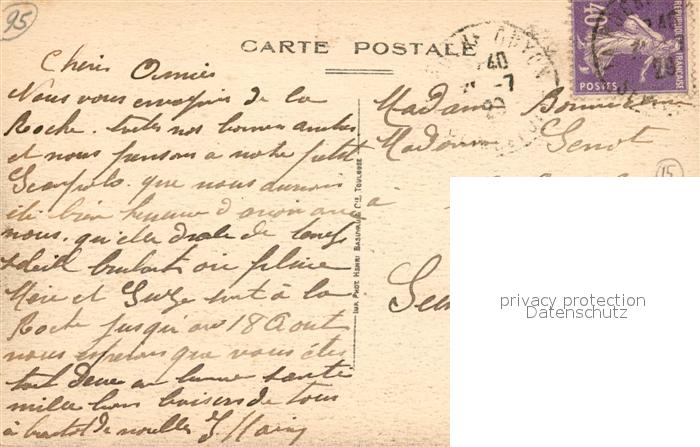 95
CARTE POSTALE
40
POSTES
RÉPUBLIQUE FRANÇAISE
Cheris Amies
Nous vous envoyons de la
Roche. toutes nos bonnes amitiés
et nous pensons a notre petit
que nous aurions
été bien heureux d'avoir avec
nous. quel drole de temps
soleil brulant ou pluie
Mère et Suze sont à la
Roche jusqu'au 18 Aout
nous esperons que vous êtes
tout deux en bonne santé
mille bons baisers de tous
à bientot de nouvelles
IMP. PHOT. HENRI BASUYAU & CIE, TOULOUSE
Madame
Madame Genot
à
15
privacy protection
Datenschutz